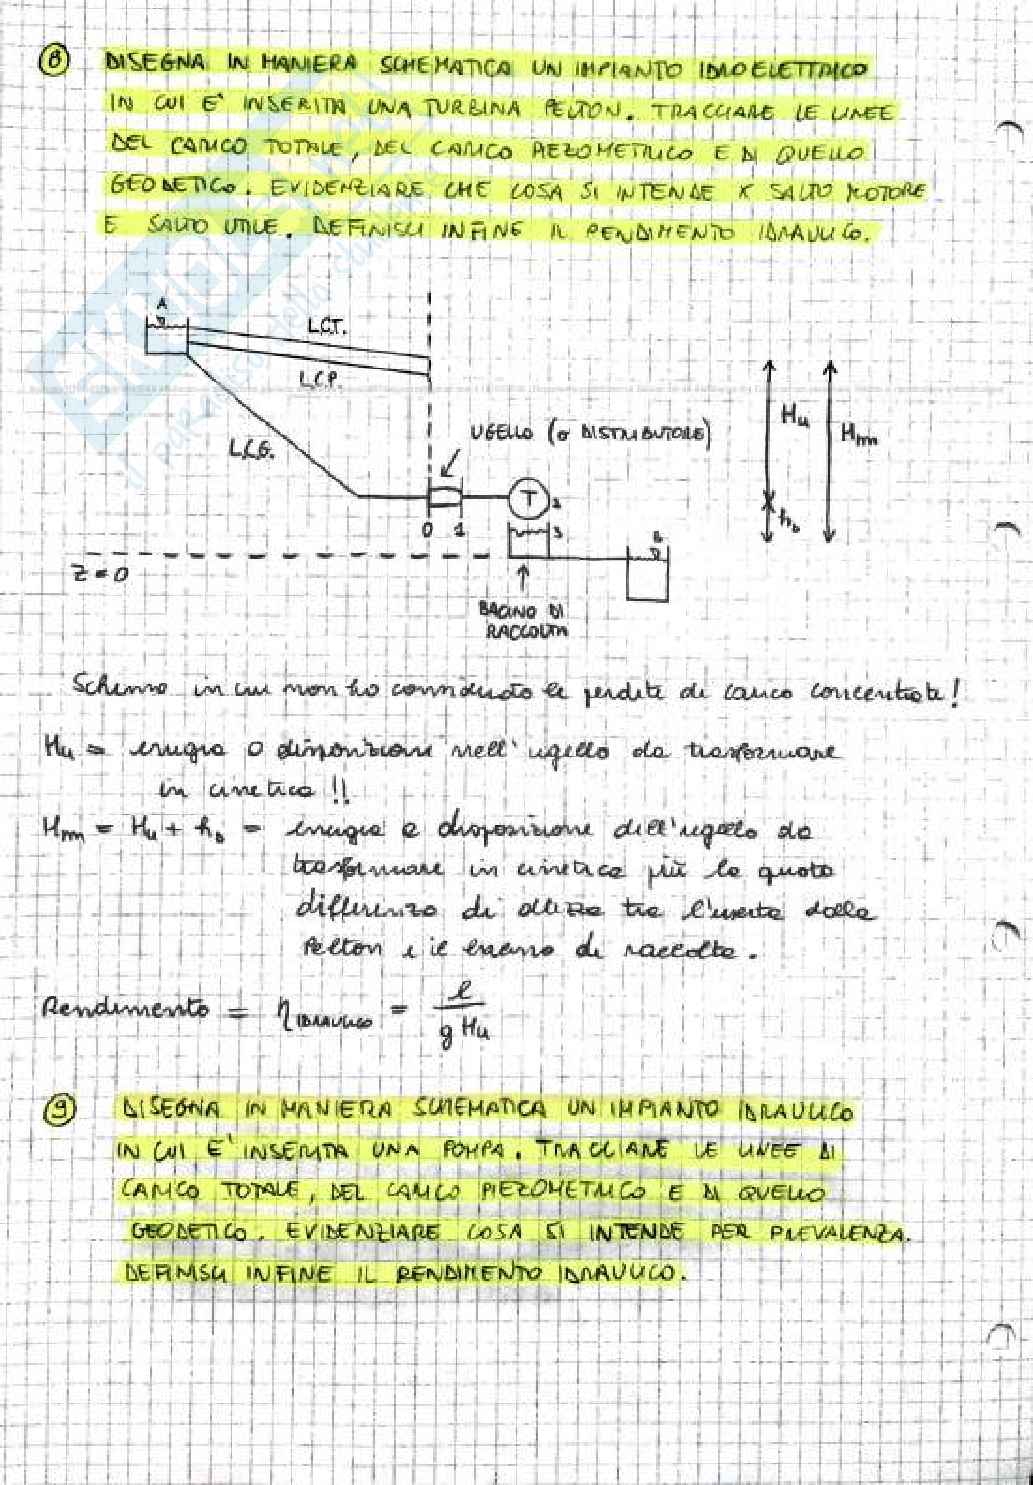 8 DISEGNA IN MANIERA SCHEMATICA UN IMPIANTO IDROELETTRICO
IN CUI E' INSERITA UNA TURBINA PELTON. TRACCIARE LE LINEE
DEL CARICO TOTALE, DEL CARICO PIEZOMETRICO E DI QUELLO
GEODETICO. EVIDENZIARE CHE COSA SI INTENDE X SALTO MOTORE
E SALTO UTILE. DEFINISCI INFINE IL RENDIMENTO IDRAULICO.
A
L.C.T.
L.C.P.
L.C.G.
UGELLO (O DISTRIBUTORE)
Hu
Hm
h₀
T
2
0 1
3
B
Z=0
BACINO DI
RACCOLTA
Schema in cui non ho considerato le perdite di carico concentrate!
Hu = energia a disposizione nell'ugello da trasformare
in cinetica!!
Hm = Hu + h₀ = energia a disposizione dell'ugello da
trasformare in cinetica più la quota
differenza di altezza tra l'uscita dalla
Pelton e il bacino di raccolta.
Rendimento = η IDRAULICO = l / g Hu
9 DISEGNA IN MANIERA SCHEMATICA UN IMPIANTO IDRAULICO
IN CUI E' INSERITA UNA POMPA. TRACCIARE LE LINEE DI
CARICO TOTALE, DEL CARICO PIEZOMETRICO E DI QUELLO
GEODETICO. EVIDENZIARE COSA SI INTENDE PER PREVALENZA.
DEFINISCI INFINE IL RENDIMENTO IDRAULICO.